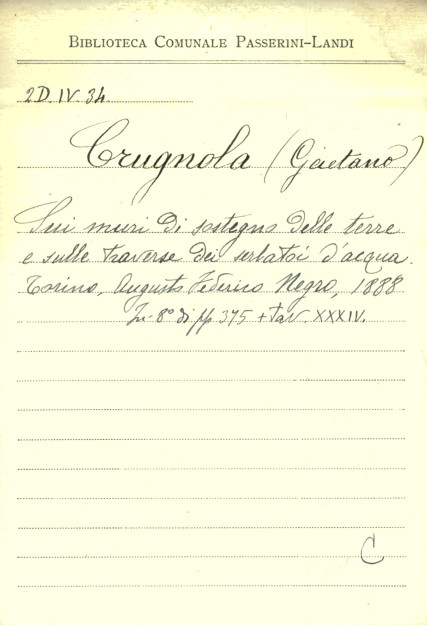 BIBLIOTECA COMUNALE PASSERINI-LANDI
2D.IV.34.
Crugnola (Gaetano)
Sui muri di sostegno delle terre
e sulle traverse dei serbatoi d'acqua.
Torino, Augusto Federico Negro, 1888
In-8° di pp 375 + tav. XXXIV.
C